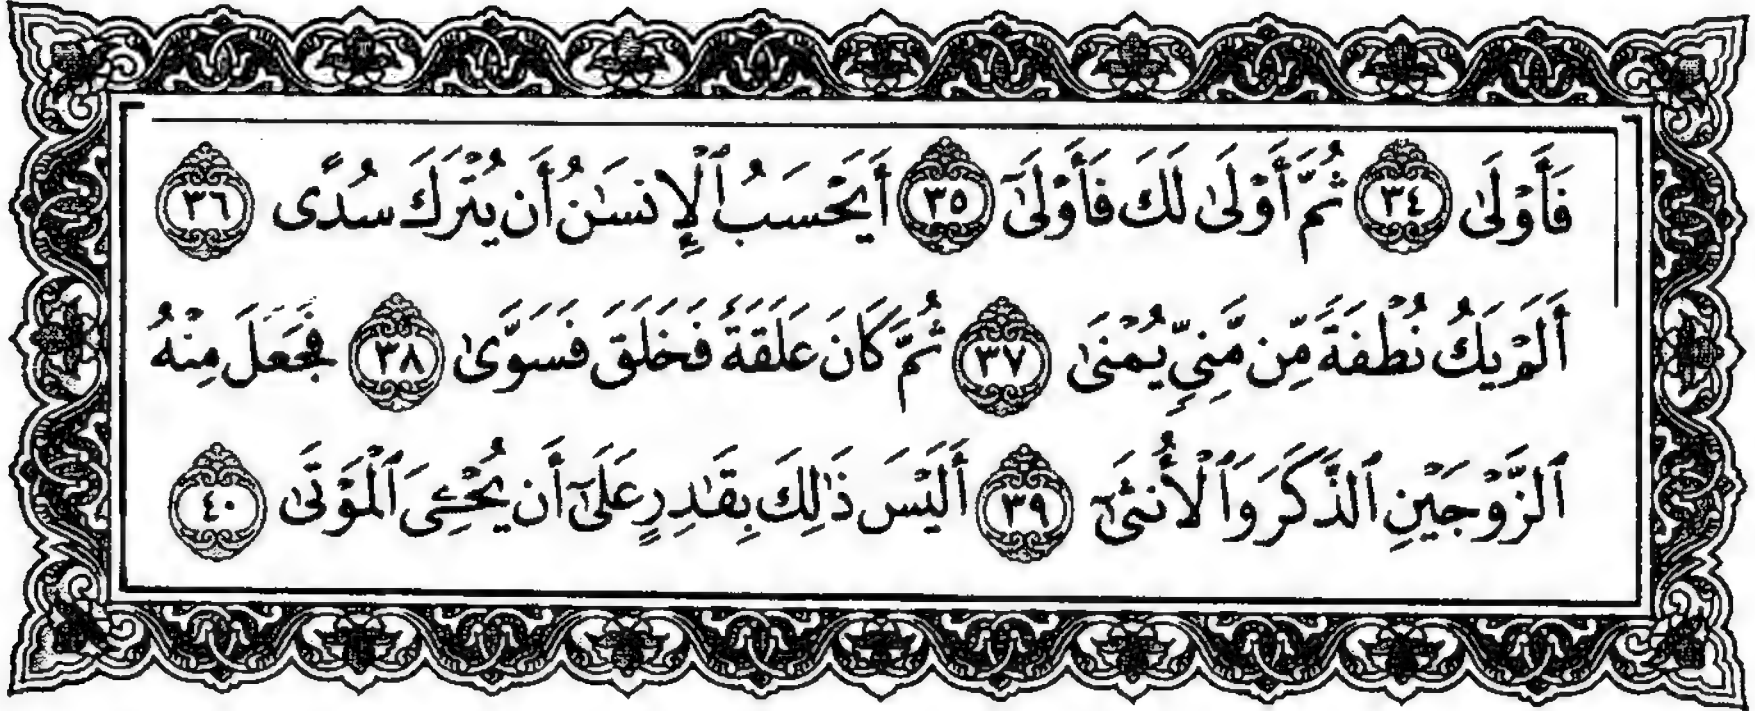 فَأَوْلَىٰ ٣٤ ثُمَّ أَوْلَىٰ لَكَ فَأَوْلَىٰٓ ٣٥ أَيَحْسَبُ ٱلْإِنسَٰنُ أَن يُتْرَكَ سُدًى ٣٦
أَلَمْ يَكُ نُطْفَةً مِّن مَّنِىٍّ يُمْنَىٰ ٣٧ ثُمَّ كَانَ عَلَقَةً فَخَلَقَ فَسَوَّىٰ ٣٨ فَجَعَلَ مِنْهُ
ٱلزَّوْجَيْنِ ٱلذَّكَرَ وَٱلْأُنثَىٰٓ ٣٩ أَلَيْسَ ذَٰلِكَ بِقَٰدِرٍ عَلَىٰٓ أَن يُحْۦِىَ ٱلْمَوْتَىٰ ٤٠